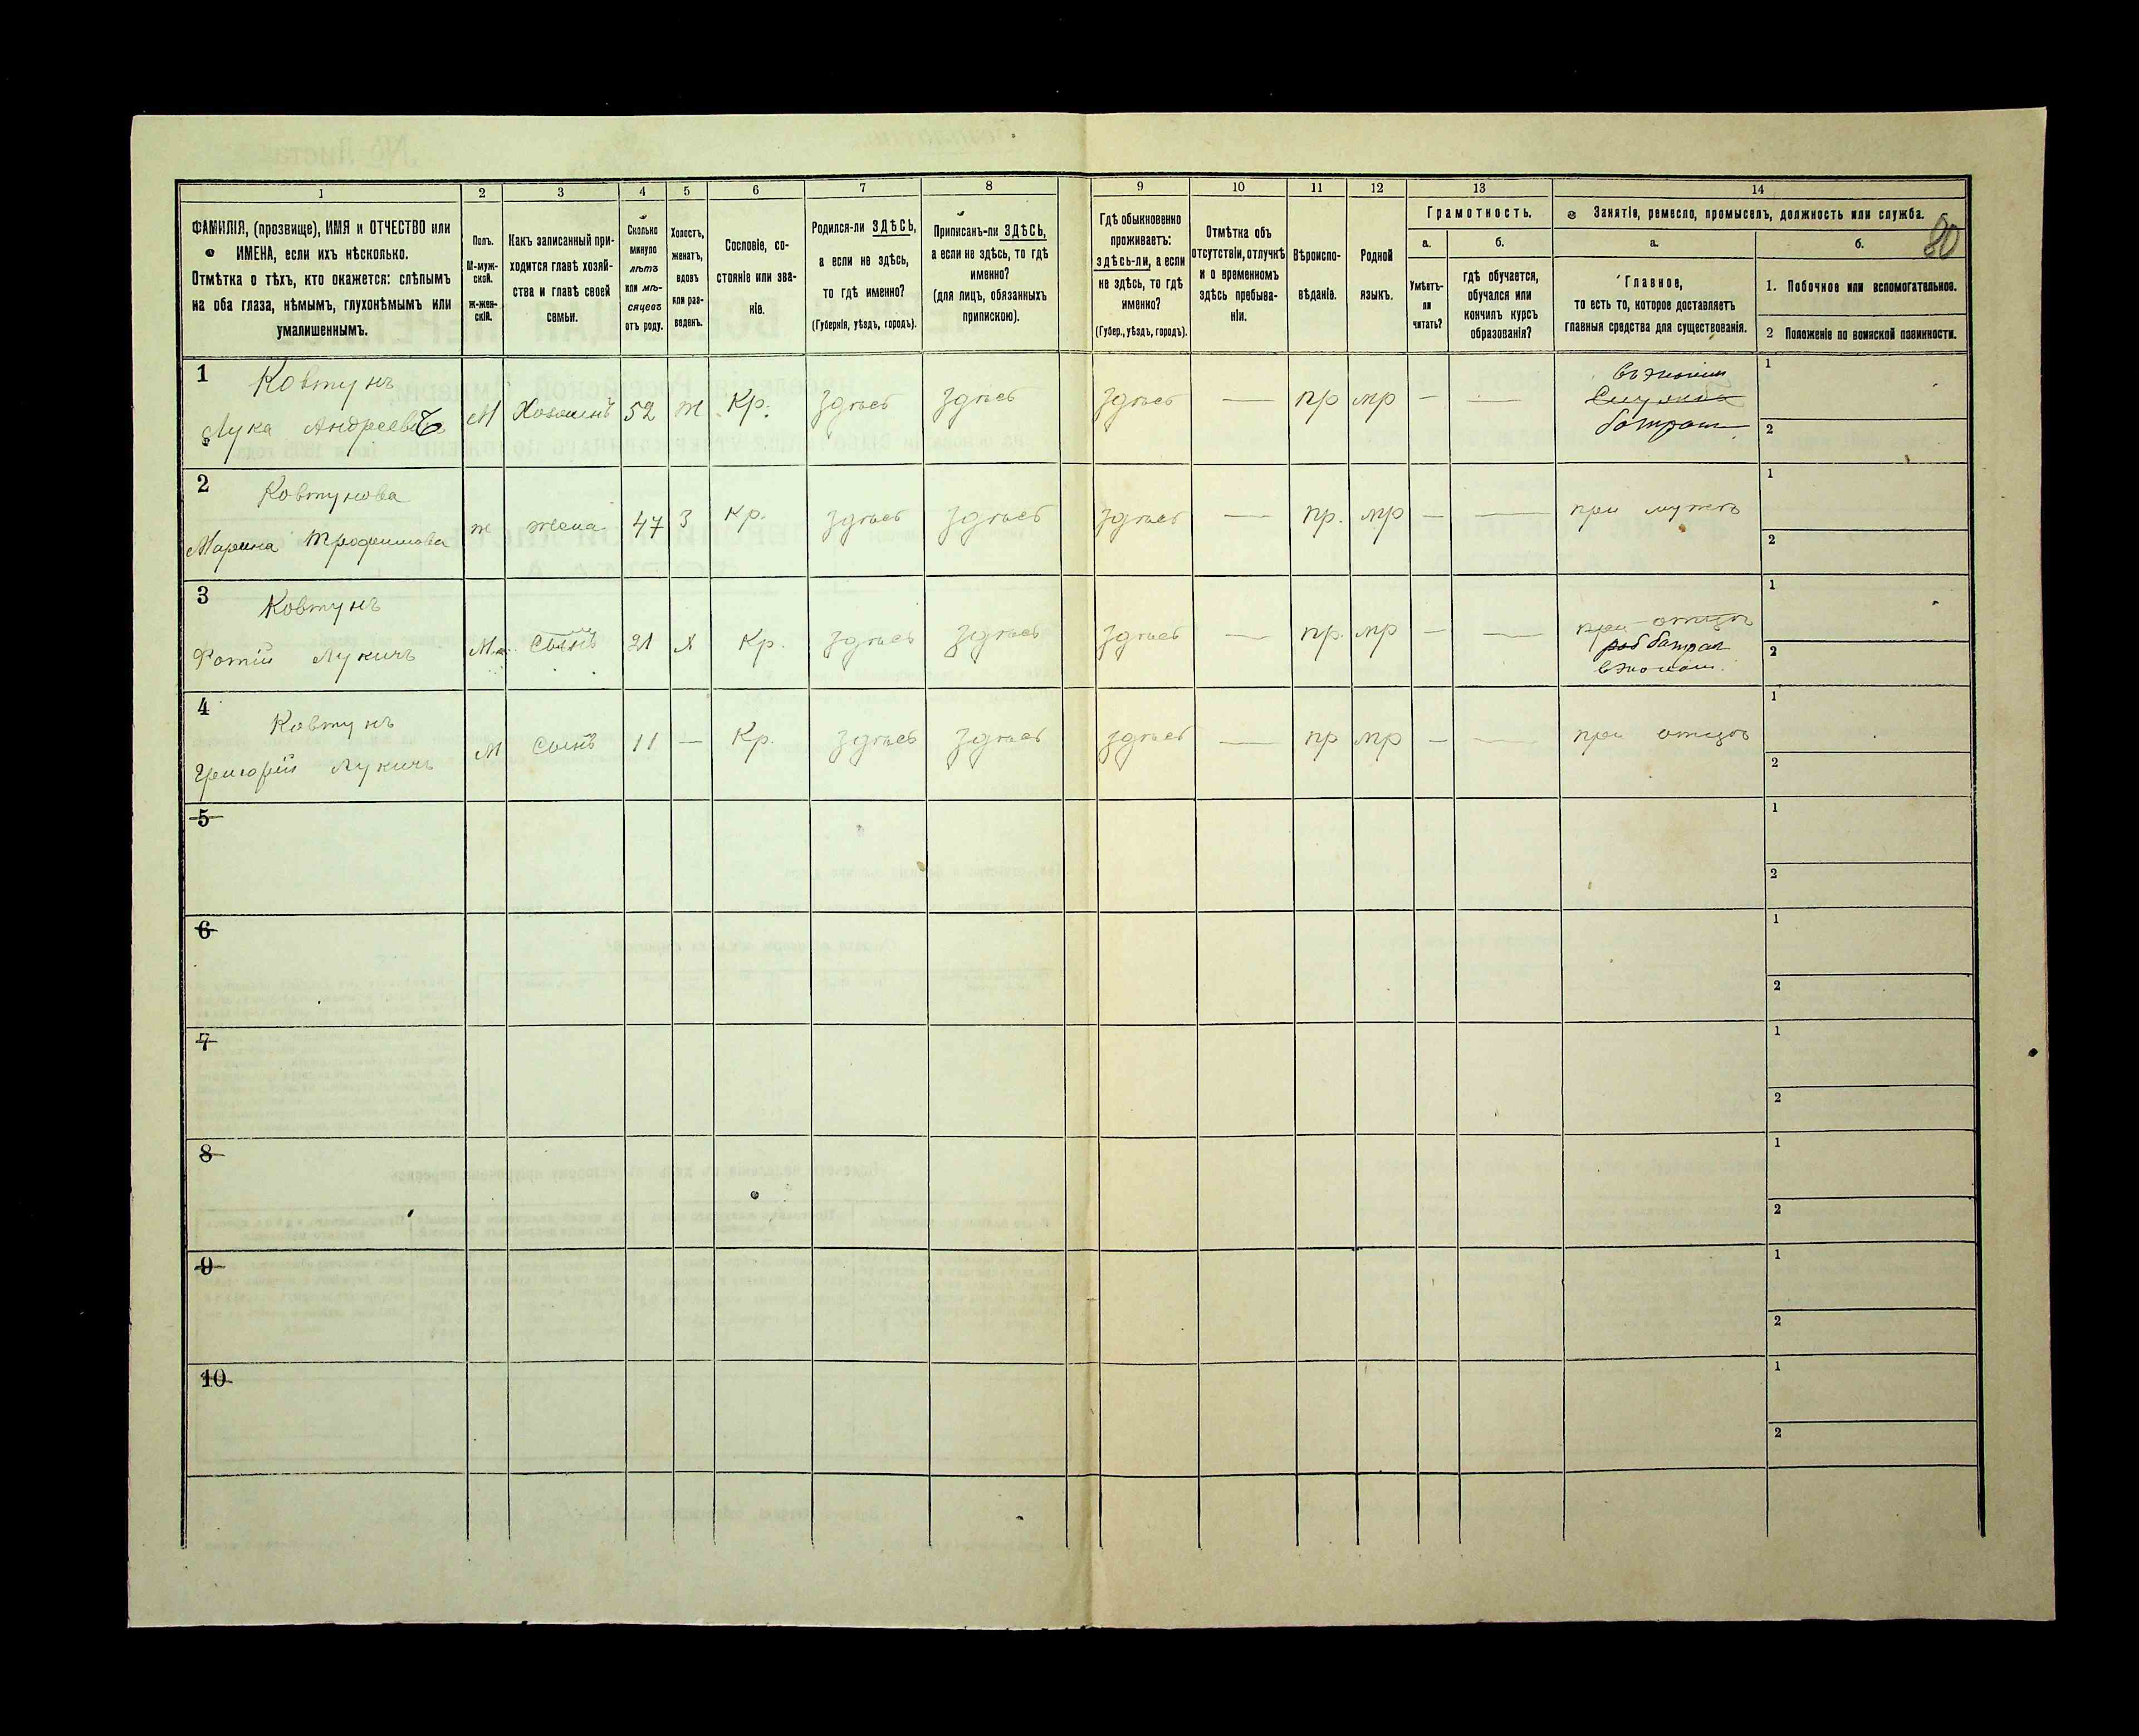 1 2 3 4 5 6 7 8 9 10 11 12 13 14
80
ФАМИЛІЯ, (прозвище), ИМЯ и ОТЧЕСТВО или
ИМЕНА, если ихъ нѣсколько.
Отмѣтка о тѣхъ, кто окажется: слѣпымъ
на оба глаза, нѣмымъ, глухонѣмымъ или
умалишеннымъ.
Полъ.
М-муж-
ской.
Ж-жен-
скій.
Какъ записанный при-
ходится главѣ хозяй-
ства и главѣ своей
семьи.
Сколько
минуло
лѣтъ
или мѣ-
сяцевъ
отъ роду.
Холостъ,
женатъ,
вдовъ
или раз-
веденъ.
Сословіе, со-
стояніе или зва-
ніе.
Родился-ли ЗДѢСЬ,
а если не здѣсь,
то гдѣ именно?
(Губернія, уѣздъ, городъ).
Приписанъ-ли ЗДѢСЬ,
а если не здѣсь, то гдѣ
именно?
(для лицъ, обязанныхъ
припискою).
Гдѣ обыкновенно
проживаетъ:
здѣсь-ли, а если
не здѣсь, то гдѣ
именно?
(Губер., уѣздъ, городъ).
Отмѣтка объ
отсутствіи, отлучкѣ
и о временномъ
здѣсь пребыва-
ніи.
Вѣроиспо-
вѣданіе.
Родной
языкъ.
Грамотность.
а.
Умѣетъ-
ли
читать?
б.
гдѣ обучается,
обучался или
кончилъ курсъ
образованія?
Занятіе, ремесло, промыселъ, должность или служба.
а.
Главное,
то есть то, которое доставляетъ
главныя средства для существованія.
б.
1. Побочное или вспомогательное.
2 Положеніе по воинской повинности.
1 Ковтунъ
Лука Андреевъ М Хозяинъ 52 ж Кр. здѣсь здѣсь здѣсь — пр мр — —
батрак
1
2
2 Ковтунова
Марина Трофимова ж жена 47 З кр. здѣсь здѣсь здѣсь — пр. мр — — при мужѣ
1
2
3 Ковтунъ
Фотій Лукичъ М. Сынъ 21 х Кр. здѣсь здѣсь здѣсь — пр. мр — — при отцѣ
раб батрак
в эконом.
1
2
4 Ковтунъ
Григорій Лукичъ М Сынъ 11 — Кр. здѣсь здѣсь здѣсь — пр мр — — при отцѣ
1
2
5
1
2
6
1
2
7
1
2
8
1
2
9
1
2
10
1
2